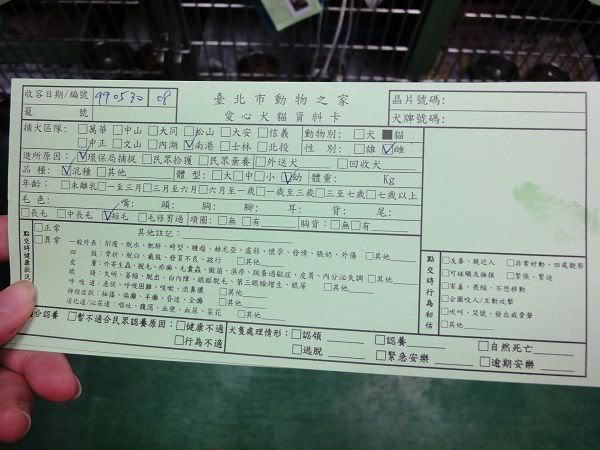 收容日期/編號 990530 08
臺北市動物之家
晶片號碼:
籠 號
愛心犬貓資料卡
犬牌號碼:
捕犬區隊: □萬華 □中山 □大同 □松山 □大安 □信義 動物別: □犬 ■貓
□中正 □文山 □內湖 ☑南港 □士林 □北投 性 別: □雄 ☑雌
進所原因: ☑環保局捕捉 □民眾拾獲 □民眾棄養 □外送犬 □回收犬
品 種: ☑混種 □其他 體 型: □大 □中 □小 ☑幼 體重: Kg
年齡: □未離乳 □一至三月 □三月至六月 □六月至一歲 □一歲至三歲 □三至七歲 □七歲以上
毛 色: 嘴: 頭: 胸: 腳: 耳: 背: 尾:
□長毛 □中長毛 ☑短毛 □毛修剪過 項圈: □無 □有 胸背: □無 □有
點交時健康狀況
□正常 其他註記:
□異常 一般外表: 削瘦、脫水、肥胖、畸型、腫瘤、柚尼亞、虛弱、懷孕、發情、賬奶、外傷 □其他
四 肢: 骨折、脫臼、截肢、發育不良、跛行 □其他
皮 膚: 外寄生蟲、脫毛、疥癬、毛囊蟲、黴菌、濕疹、跳蚤過敏症、皮膚、內分泌失調 □其他
眼 睛: 失明、萎縮、脫出、白內障、眼瞼脫毛、第三眼瞼增生、眼屎 □其他
呼吸道: 氣喘、呼吸困難、咳嗽、流鼻膿 □其他
神經症狀: 抽搐、偏癱、半癱、昏迷、全癱 □其他
消化道/泌尿道: 嘔吐、腹瀉、血便、血尿、菜花 □其他
點交時行為初估
□友善、親近人 □非常好動、四處觀察
□可碰觸及撫摸 □緊張、緊迫
□害羞、畏縮、不想移動
□企圖咬人/主動攻擊
□吠叫、哭號、發出威脅聲
□其他
合認養 □暫不適合民眾認養原因: □健康不適
□行為不適
犬隻處理情形: □認領 □認養 □自然死亡
□逃脫 □緊急安樂 □逾期安樂